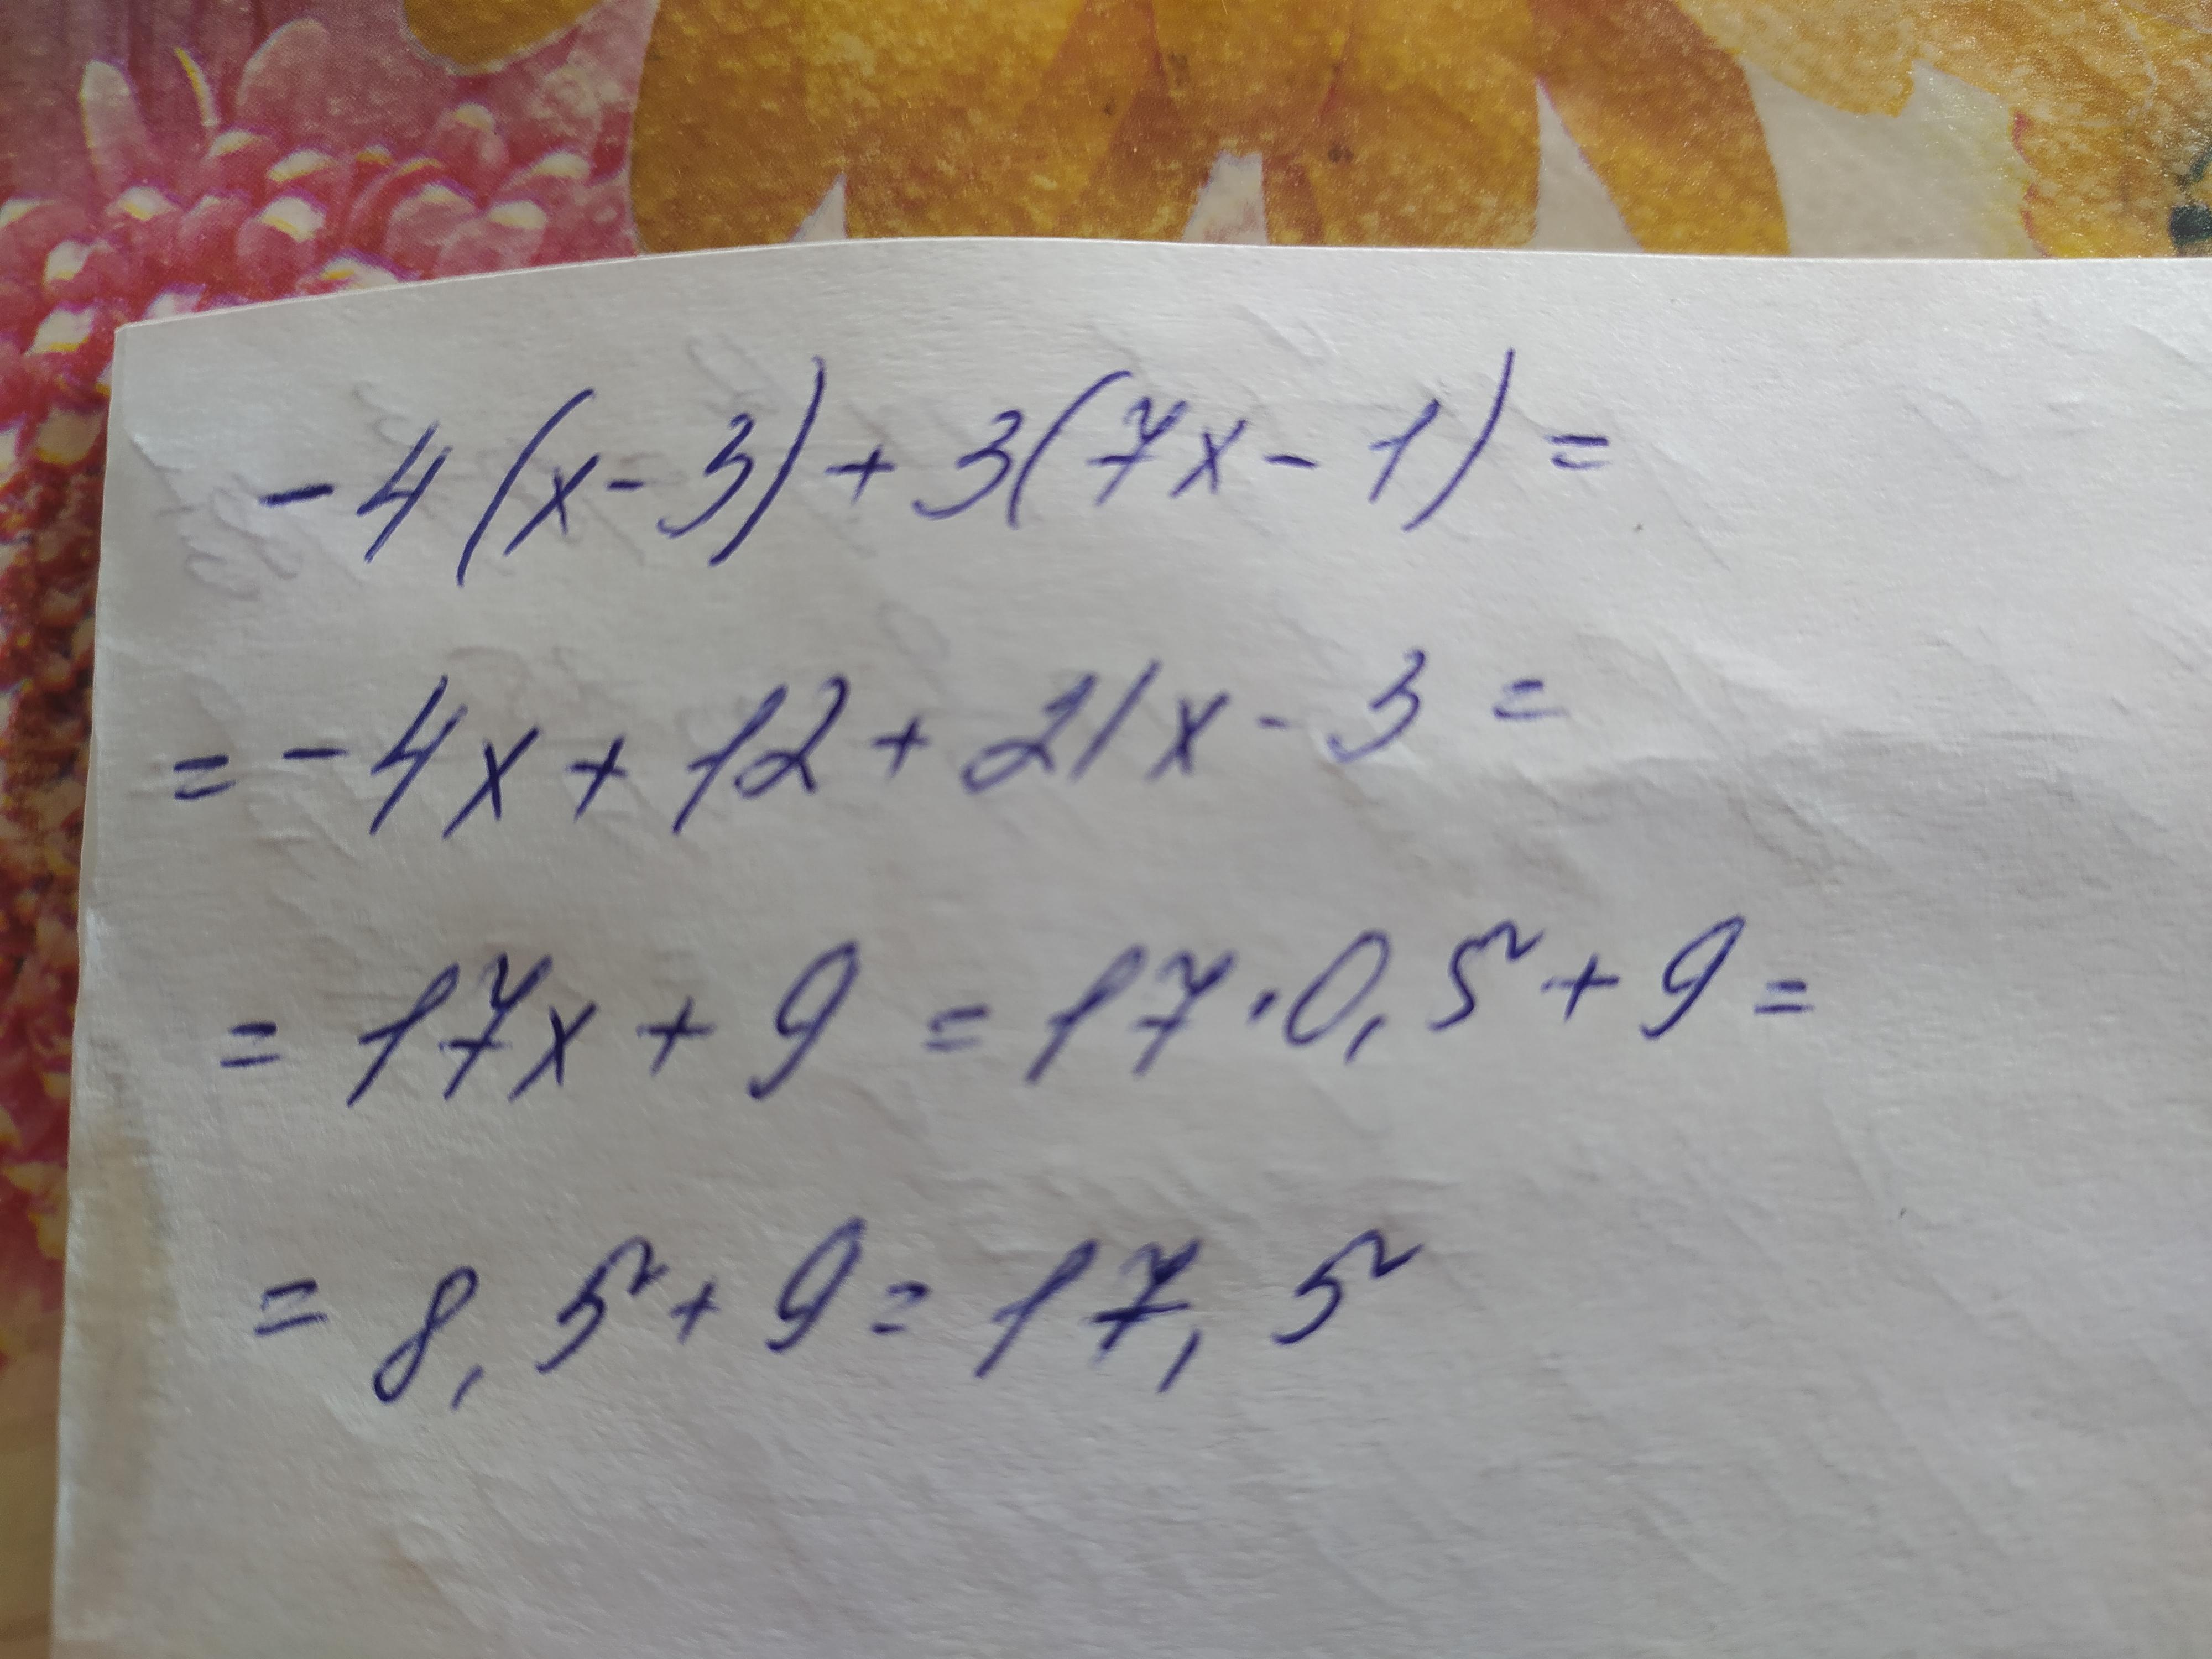 -4(x-3)+3(7x-1)=
=-4x+12+21x-3=
=17x+9=17·0,5+9=
=8,5+9=17,5